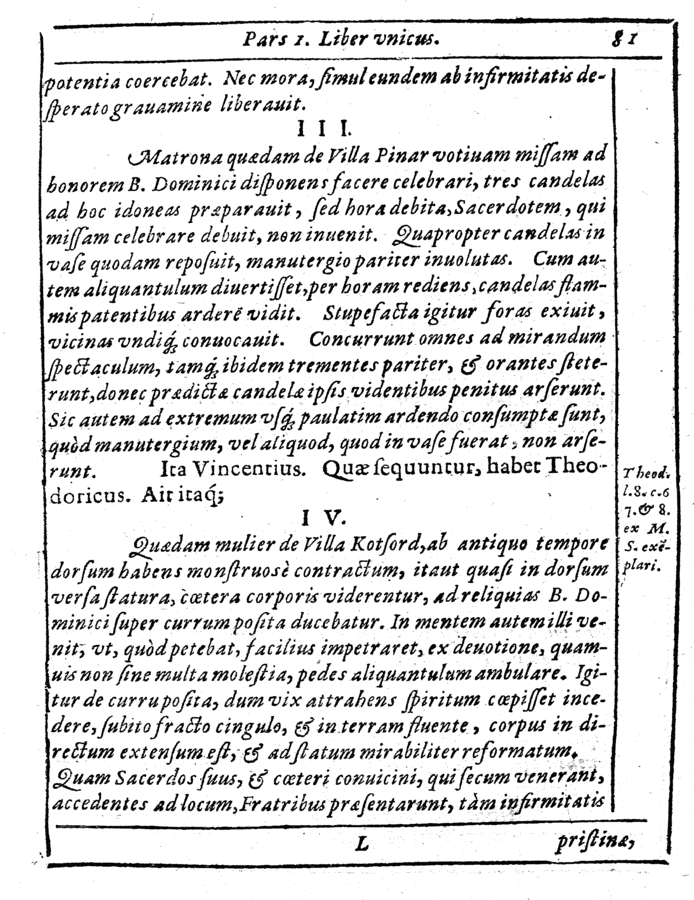 Pars 1. Liber vnicus. 81
potentia coercebat. Nec mora, ſimul eundem ab infirmitatis de-
ſperato grauamine liberauit.
III.
Matrona quædam de Villa Pinar votiuam miſſam ad
honorem B. Dominici diſponens facere celebrari, tres candelas
ad hoc idoneas præparauit, ſed hora debita, Sacerdotem, qui
miſſam celebrare debuit, non inuenit. Quapropter candelas in
vaſe quodam repoſuit, manutergio pariter inuolutas. Cum au-
tem aliquantulum diuertiſſet, per horam rediens, candelas flam-
mis patentibus arderē vidit. Stupefacta igitur foras exiuit,
vicinas vndiq́; conuocauit. Concurrunt omnes ad mirandum
ſpectaculum, tamq́; ibidem trementes pariter, & orantes ſtete-
runt, donec prædictæ candelæ ipſis videntibus penitus arſerunt.
Sic autem ad extremum vſq́; paulatim ardendo conſumptæ ſunt,
quòd manutergium, vel aliquod, quod in vaſe fuerat, non arſe-
runt. Ita Vincentius. Quæ ſequuntur, habet Theo-
doricus. Ait itaq́;
IV.
Quædam mulier de Villa Kotſord, ab antiquo tempore
dorſum habens monſtruosè contractum, itaut quaſi in dorſum
verſa ſtatura, cœtera corporis viderentur, ad reliquias B. Do-
minici ſuper currum poſita ducebatur. In mentem autem illi ve-
nit, vt, quòd petebat, facilius impetraret, ex deuotione, quam-
uis non ſine multa moleſtia, pedes aliquantulum ambulare. Igi-
tur de curru poſita, dum vix attrahens ſpiritum cœpiſſet ince-
dere, ſubito fracto cingulo, & in terram fluente, corpus in di-
rectum extenſum eſt, & ad ſtatum mirabiliter reformatum.
Quam Sacerdos ſuus, & cœteri conuicini, qui ſecum venerant,
accedentes ad locum, Fratribus præſentarunt, tàm infirmitatis
L priſtinæ,
Theod.
l. 8. c. 6
7. & 8.
ex M.
S. exē-
plari.